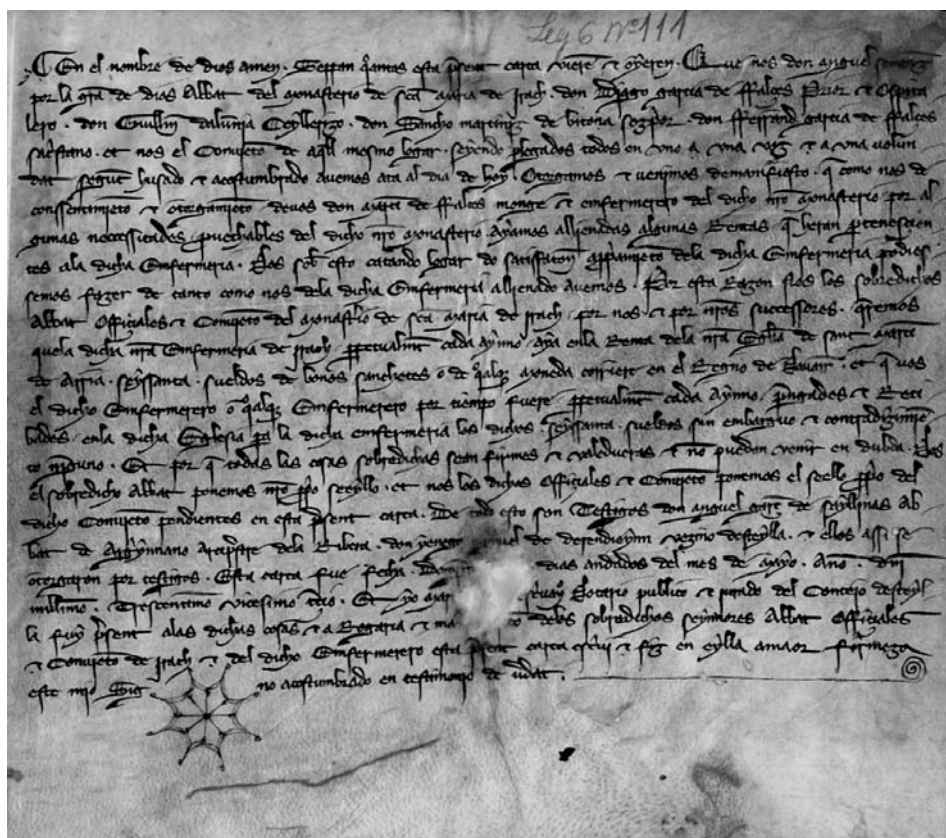 Leg 6 Nº 111
En el nombre de dios amen. Seppan qantas esta psent carta viere & oyeren. Que nos don miguel
por la gra de dios Abbat del monasterio de sca maria de Irach. don Diago garcia de ffalces Prior & Ospita
lero. don Guillm Ceyllerizo. don Sancho martiniz de bitoria don fferrand garcia de ffalces
et nos el Conuento de aqll mesmo logar. seyendo plegados todos en vno a vna voz & a vna volun
dat segunt husado & acostumbrado auemos ata al dia de hoy Otorgamos & venimos de manifiesto. q como nos de
consentimieto & otorgamieto de uos don maria de ffalces monge & enfermerero del dicho nro monasterio por al
gunas neccessidades puechables del dicho nro monasterio Ayamos allienadas algunas Rentas q heran ptenescien
tes ala dicha Enfermeria. Nos sob esto catando logar do satisffation dela dicha Enfermeria podies
semos fazer de tanto como nos dela dicha Enfermeria allienado auemos. Por esta Razon Nos los sobredichos
Abbat Officiales & Conuento del monastio de sca maria de Irach. por nos & por nros successores. qremos
quela dicha nra Enfermeria de Irach. ppetualmt cada aynno aya enla Renta dela nra Eglia de sant
de seyssanta. sueldos de bonos sanchetes o de qalqr moneda corriere en el Regno de Nauarr. et q vos
el dicho Enfermerero o qalqr Enfermerero por tiempo fuere ppetualmt cada aynno. pngades & Reci
bades. enla dicha Eglesia pa la dicha enfermeria los dichos. seyssanta. sueldos sin embarguo & contradizimie
to ninguno. Et por q todas las cosas sobredichas sean firmes & valederas & no puedan venir en dubda. Nos
el sobredicho Abbat ponemos nro pprio seyello. et nos los dichos Officiales & Conuento ponemos el seello pprio del
dicho Conuento pendientes en esta psent carta. De todo esto son Testigos don miguel garz de saylinas Ab
bat de Arcipstre dela Ribera. don yenego de vezino destella. & ellos assi se
otorgaron por testigos. Esta carta fue fecha. dias andados del mes de mayo. Ano. dni
millimo. Trescentimo vicesimo tcio. Et yo Notario publico & jurado del Conceio desteyl
la fuy psent alas dichas cosas & a Rogaria & delos sobredichos seynnores Abbat Officiales
& Conuento de Irach & del dicho Enfermerero esta psent carta & fiz en eylla a maor firmeza
este mio Sig no acostumbrado en testimonio de vdat.